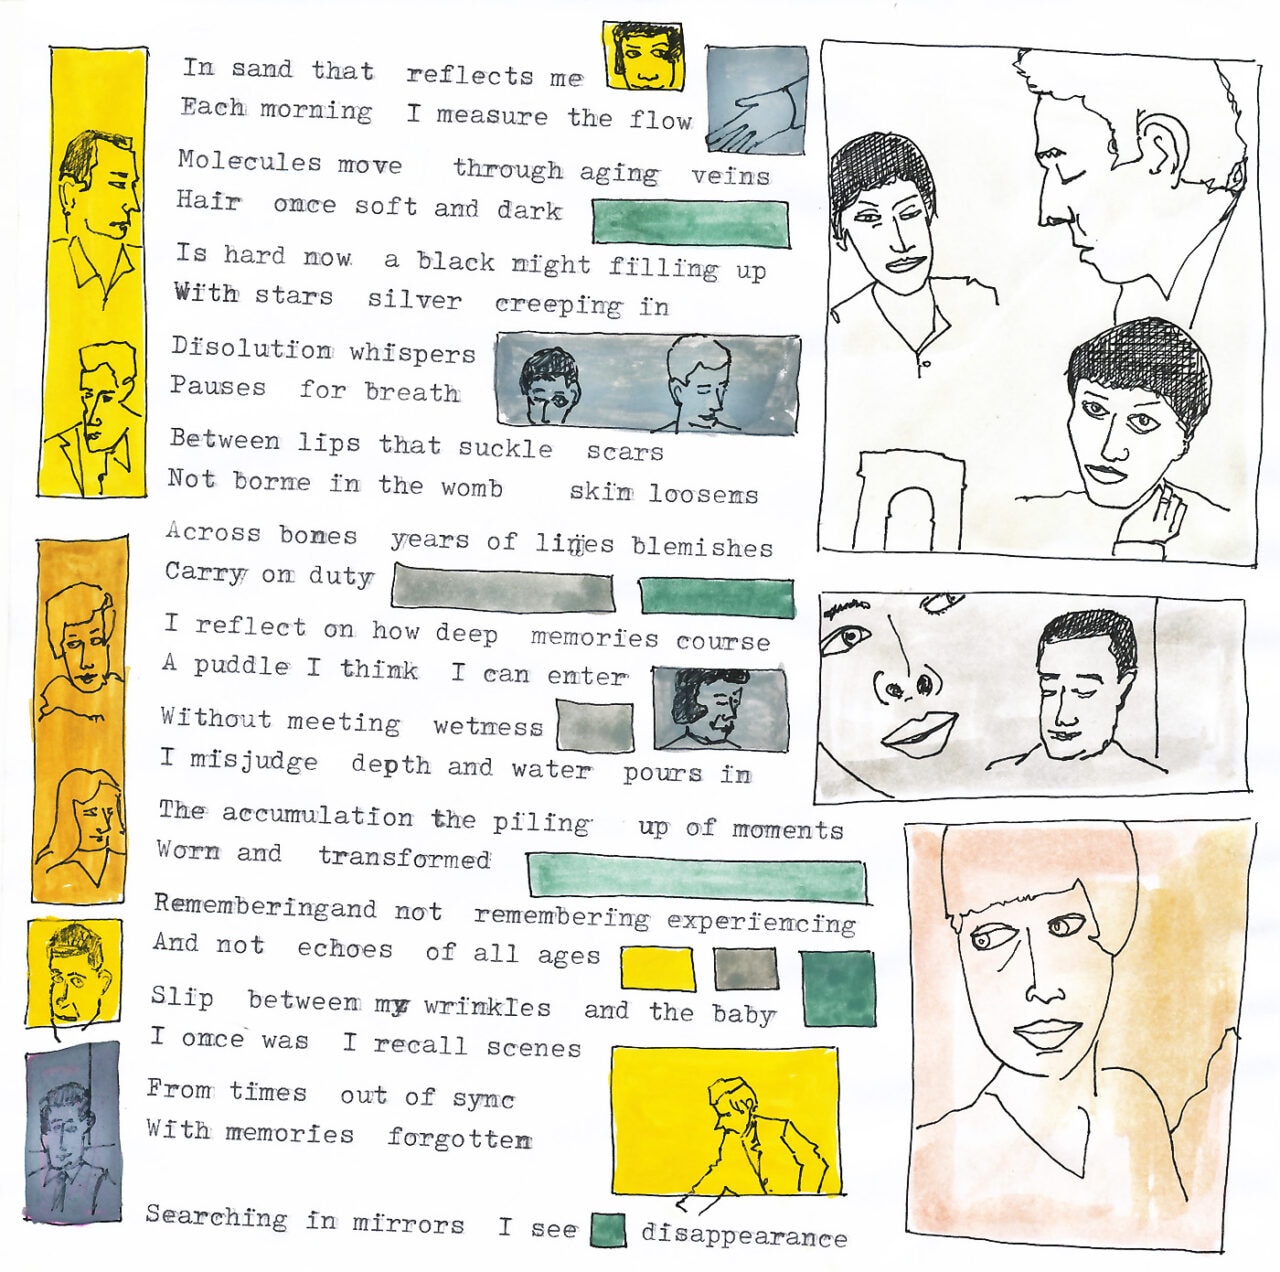 In sand that reflects me
Each morning I measure the flow
Molecules move through aging veins
Hair once soft and dark
Is hard now a black night filling up
With stars silver creeping in
Disolution whispers
Pauses for breath
Between lips that suckle scars
Not borne in the womb skin loosens
Across bones years of lines blemishes
Carry on duty
I reflect on how deep memories course
A puddle I think I can enter
Without meeting wetness
I misjudge depth and water pours in
The accumulation the piling up of moments
Worn and transformed
Rememberingand not remembering experiencing
And not echoes of all ages
Slip between my wrinkles and the baby
I once was I recall scenes
From times out of sync
With memories forgotten
Searching in mirrors I see disappearance